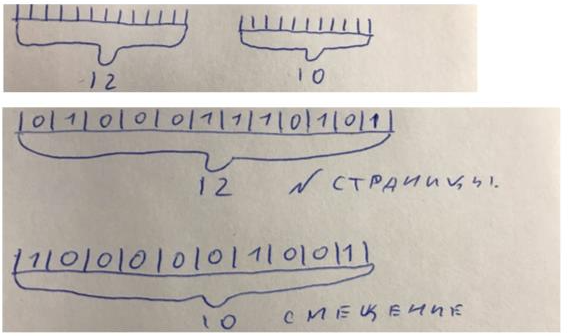 12 10
|0|1|0|0|0|1|1|1|0|1|0|1|
12 № СТРАНИЦЫ.
|1|0|0|0|0|0|1|0|0|1|
10 СМЕЩЕНИЕ